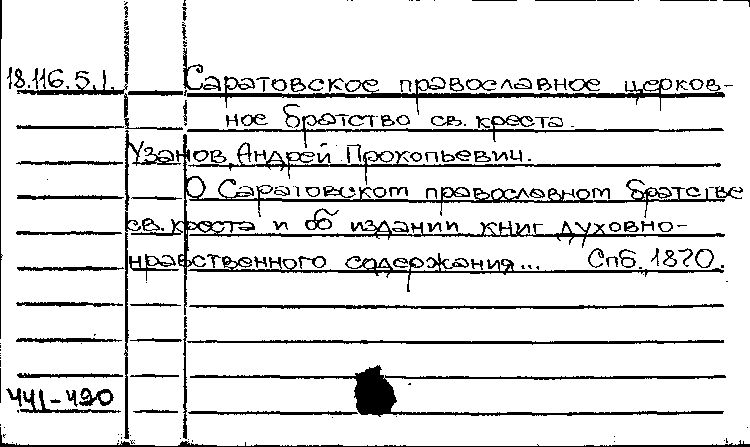 18.116.5.1. Саратовское православное церков-
ное братство св. креста.
Узанов, Андрей Прокопьевич.
О Саратовском православном братстве
св. креста и об издании книг духовно-
нравственного содержания... Спб., 1870.
441-490